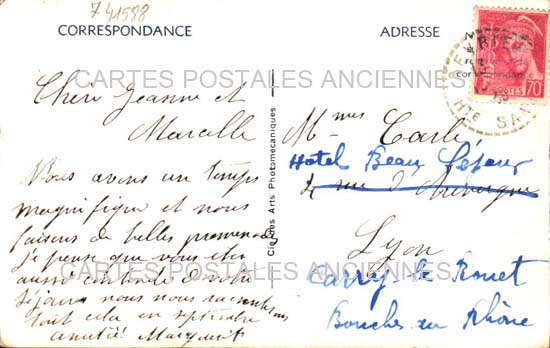 741588
CORRESPONDANCE
ADRESSE
CARTES POSTALES ANCIENNES
Chère Jeanne et
Marcelle
Nous avons un temps
magnifique et nous
faisons de belles promenades
je pense que vous êtes
aussi contente de votre
séjour nous nous raconterons
tout cela en septembre
amitié Marguerit
Cie des Arts Photomécaniques
Mmes Carle
Hotel Beau Séjour
2 rue d'Auvergne
Lyon
Carry le Rouet
Bouches du Rhône
CARTES POSTALES ANCIENNES
POSTES
70
Hte SAV